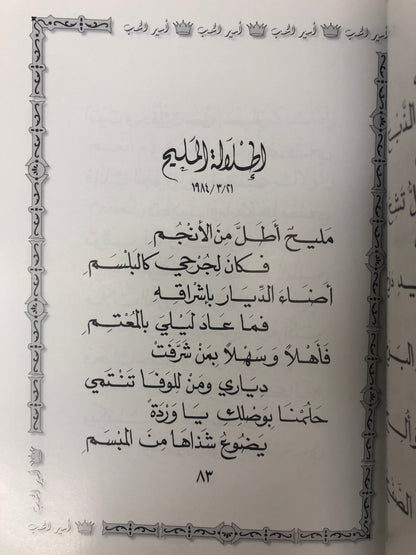 أمير الحب أمير الحب أمير الحب أمير الحب
إطلالة المليح
١٩٨٤/٣/٢١
مَليحٌ أطَلَّ مِنَ الأنْجُمِ
فَكانَ لِجُرْحيَ كالبَلْسَمِ
أضَاءَ الدِّيَارَ بإشراقِهِ
فمَا عادَ لَيْليَ بالمُعْتمِ
فأهْلاً وَسَهْلاً بِمَنْ شَرَّفَتْ
دِيَاري وَمِنْ للوفَا تنْتَمي
حلُمْنَا بوَصْلِكِ يا وَرْدَةً
يَضُوعُ شذَاهَا مِنَ المبْسَمِ
٨٣
أمير الحب
أمير الحب
أمير الحب